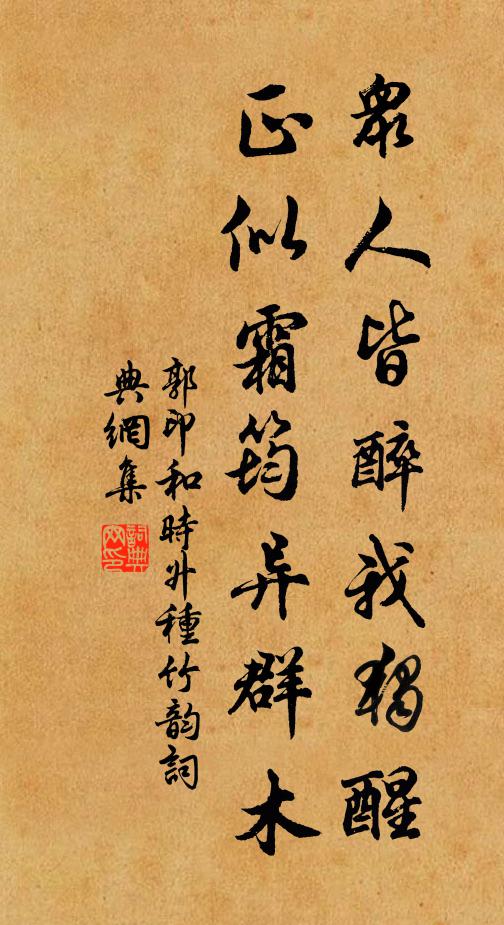 眾人皆醉我獨醒
正似霜筠异群木
郭印和時升種竹韵詞
典網集
詞典网印